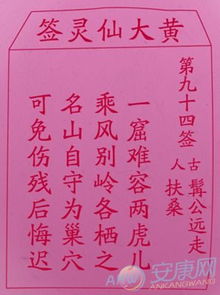 黄大仙灵签
第九十四签
古人 髯公远走扶桑
一窟难容两虎儿
乘风别岭各栖之
名山自守为巢穴
可免伤残后悔迟
安康网
ANKANGWANG.CN